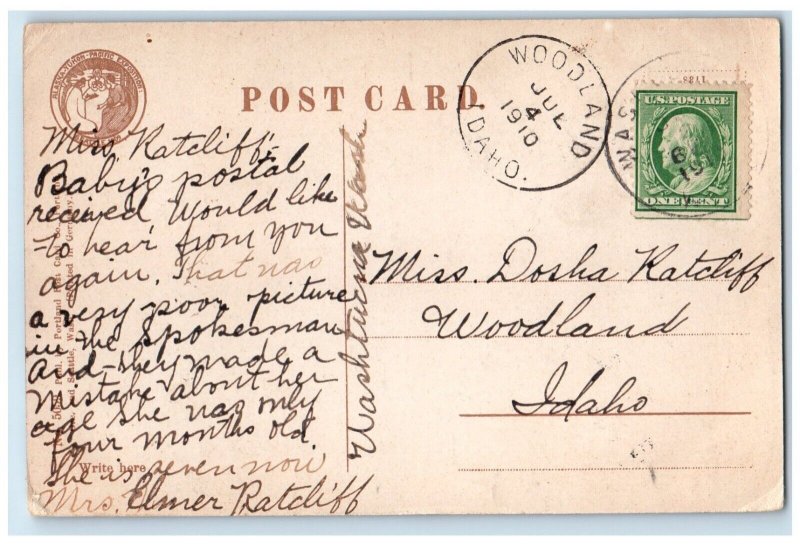 ALASKA-YUKON-PACIFIC EXPOSITION
POST CARD.
WOODLAND
JUL
4
1910
IDAHO.
WAS
6
191
U.S. POSTAGE
ONE CENT
Miss Ratcliff:
Baby's postal
received Would like
to hear from you
again. That was
a very poor picture
in the Spokesman
and they made a
mistake about her
age She was only
four months old.
She is seven now
Mrs. Elmer Ratcliff
Washtucna Wash
Miss. Dosha Ratcliff
Woodland
Idaho
Write here